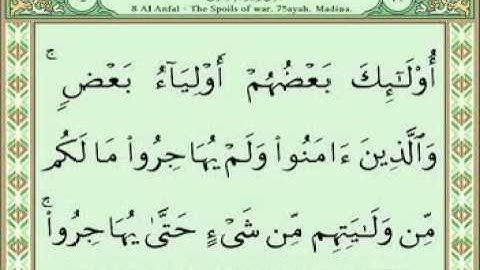 8 Al Anfal - The Spoils of war. 75ayah. Madina.
أُو۟لَـٰٓئِكَ بَعْضُهُمْ أَوْلِيَآءُ بَعْضٍ ۚ
وَٱلَّذِينَ ءَامَنُوا۟ وَلَمْ يُهَاجِرُوا۟ مَا لَكُم
مِّن وَلَـٰيَتِهِم مِّن شَىْءٍ حَتَّىٰ يُهَاجِرُوا۟ ۚ